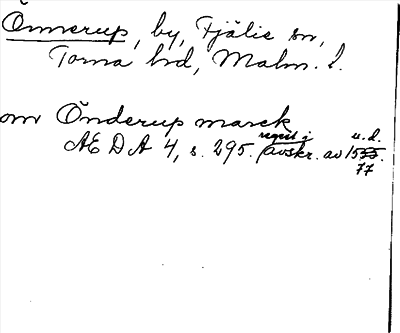 Önnerup, by, Fjälie sn,
Torna hd, Malm. l.
om Önderup marck
regist i u. d.
AEDA 4, s. 295. avskr. av 1535
77